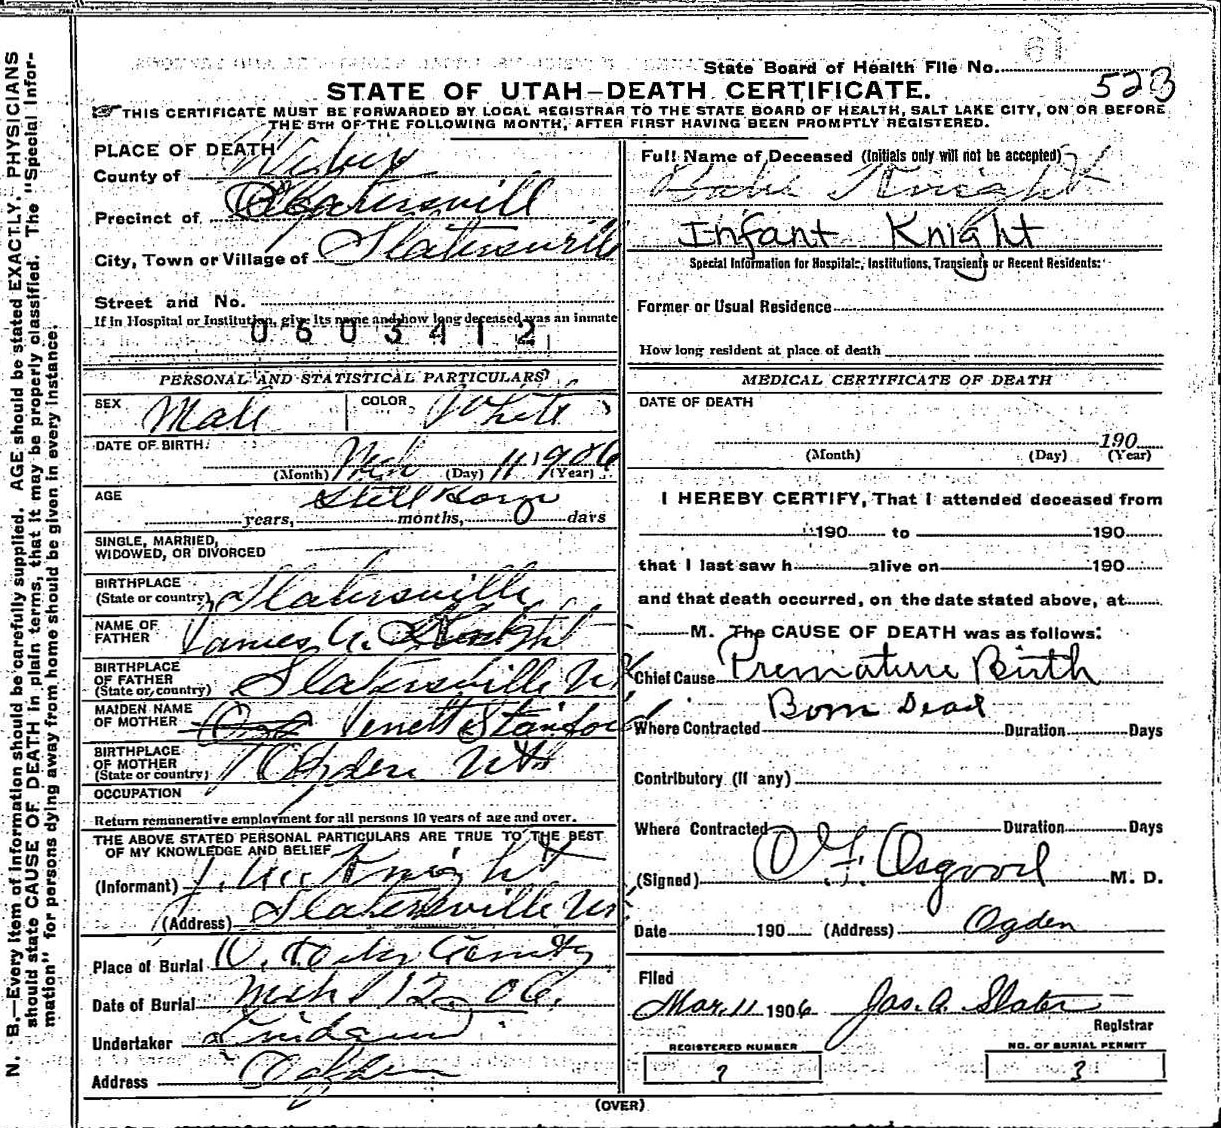 State Board of Health File No. 523
STATE OF UTAH—DEATH CERTIFICATE.
THIS CERTIFICATE MUST BE FORWARDED BY LOCAL REGISTRAR TO THE STATE BOARD OF HEALTH, SALT LAKE CITY, ON OR BEFORE
THE 5TH OF THE FOLLOWING MONTH, AFTER FIRST HAVING BEEN PROMPTLY REGISTERED.
PLACE OF DEATH
County of Weber
Precinct of Slatersvill
City, Town or Village of Slatersville
Street and No.
If in Hospital or Institution, give its name and how long deceased was an inmate
0603412
PERSONAL AND STATISTICAL PARTICULARS
SEX Male COLOR White
DATE OF BIRTH:
(Month) Mch (Day) 11 1906 (Year)
AGE Still Born
years, months, 0 days
SINGLE, MARRIED,
WIDOWED, OR DIVORCED
BIRTHPLACE
(State or country) Slatersville
NAME OF
FATHER James A. Knight
BIRTHPLACE
OF FATHER
(State or country) Slatersville Ut
MAIDEN NAME
OF MOTHER Venett Stanford
BIRTHPLACE
OF MOTHER
(State or country) Ogden Utah
OCCUPATION
Return remunerative employment for all persons 10 years of age and over.
THE ABOVE STATED PERSONAL PARTICULARS ARE TRUE TO THE BEST
OF MY KNOWLEDGE AND BELIEF
(Informant) Knight
(Address) Slatersville Ut
Place of Burial
Date of Burial Mch 12 06.
Undertaker Lindquist
Address Ogden
Full Name of Deceased (Initials only will not be accepted)
Babe Knight
Infant Knight
Special Information for Hospitals, Institutions, Transients or Recent Residents:
Former or Usual Residence
How long resident at place of death
MEDICAL CERTIFICATE OF DEATH
DATE OF DEATH
190
(Month) (Day) (Year)
I HEREBY CERTIFY, That I attended deceased from
190 to 190
that I last saw h alive on 190
and that death occurred, on the date stated above, at
M. The CAUSE OF DEATH was as follows:
Chief Cause Premature Birth
Born Dead
Where Contracted Duration Days
Contributory (if any)
Where Contracted Duration Days
(Signed) O F. Osgood M. D.
Date 190 (Address) Ogden
Filed
Mar. 11 1906 Jas. A. Slater
Registrar
REGISTERED NUMBER NO. OF BURIAL PERMIT
3
(OVER)
N. B.—Every item of information should be carefully supplied. AGE should be stated EXACTLY. PHYSICIANS
should state CAUSE OF DEATH in plain terms, that it may be properly classified. The "Special Infor-
mation" for persons dying away from home should be given in every instance.